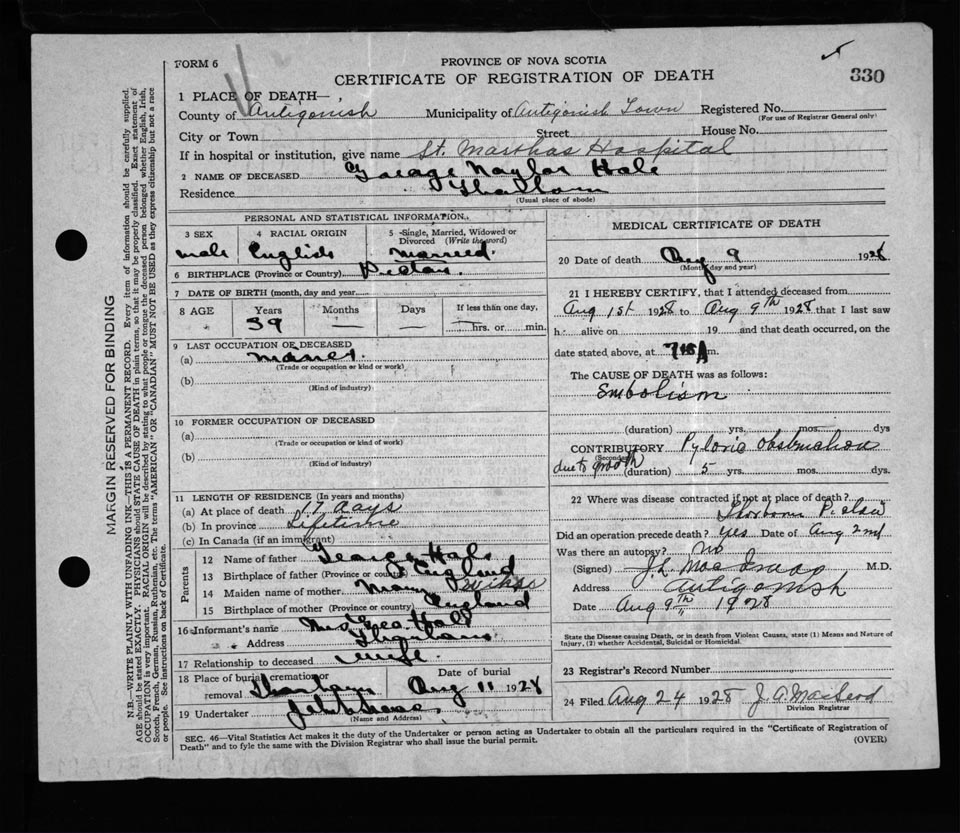 FORM 6
PROVINCE OF NOVA SCOTIA
CERTIFICATE OF REGISTRATION OF DEATH
330
1 PLACE OF DEATH—
County of Antigonish Municipality of Antigonish Town Registered No.
(For use of Registrar General only)
City or Town Street House No.
If in hospital or institution, give name St. Marthas Hospital
2 NAME OF DECEASED George Naylor Hale
Residence
(Usual place of abode)
PERSONAL AND STATISTICAL INFORMATION.
3 SEX 4 RACIAL ORIGIN 5 -Single, Married, Widowed or Divorced (Write the word)
male English Married.
6 BIRTHPLACE (Province or Country) Pictou
7 DATE OF BIRTH (month, day and year)
8 AGE Years Months Days If less than one day,
39 — — — hrs. or min.
9 LAST OCCUPATION OF DECEASED
(a) miner.
(Trade or occupation or kind or work)
(b)
(Kind of industry)
10 FORMER OCCUPATION OF DECEASED
(a)
(Trade or occupation or kind of work)
(b)
(Kind of industry)
11 LENGTH OF RESIDENCE (In years and months)
(a) At place of death 17 days
(b) In province Lifetime
(c) In Canada (if an immigrant)
Parents
12 Name of father George Hale
13 Birthplace of father (Province or country) England
14 Maiden name of mother Mary
15 Birthplace of mother (Province or country) England
16 Informant's name
Address
17 Relationship to deceased wife
18 Place of burial, cremation or removal Date of burial
Aug 11 1928
19 Undertaker
(Name and Address)
MEDICAL CERTIFICATE OF DEATH
20 Date of death Aug 9 1928
(Month, day and year)
21 I HEREBY CERTIFY, that I attended deceased from
Aug 1st 1928 to Aug 9th 1928 that I last saw
h alive on 19 and that death occurred, on the
date stated above, at m.
The CAUSE OF DEATH was as follows:
Embolism
(duration) yrs. mos. dys
CONTRIBUTORY Pyloric obstruction
(Secondary)
due to growth (duration) 5 yrs. mos. dys.
22 Where was disease contracted if not at place of death?
Did an operation precede death? yes Date of Aug 2nd
Was there an autopsy? No
(Signed) M.D.
Address Antigonish
Date Aug 9th 1928
State the Disease causing Death, or in death from Violent Causes, state (1) Means and Nature of Injury, (2) whether Accidental, Suicidal or Homicidal.
23 Registrar's Record Number
24 Filed Aug 24 1928 J A MacLeod
Division Registrar
SEC. 46—Vital Statistics Act makes it the duty of the Undertaker or person acting as Undertaker to obtain all the particulars required in the "Certificate of Registration of
Death" and to fyle the same with the Division Registrar who shall issue the burial permit.
(OVER)
MARGIN RESERVED FOR BINDING
N.B.—WRITE PLAINLY WITH UNFADING INK—THIS IS A PERMANENT RECORD. Every item of information should be carefully supplied.
AGE should be stated EXACTLY. PHYSICIANS should STATE CAUSE OF DEATH in plain terms, so that it may be properly classified. Exact statement of
OCCUPATION is very important. RACIAL ORIGIN will be described by stating to what people or tongue the deceased person belonged whether English, Irish,
Scotch, French, German, Russian, Ruthenian, etc. The terms "AMERICAN" or "CANADIAN" MUST NOT BE USED as they express citizenship but not a race
or people. See instructions on back of Certificate.